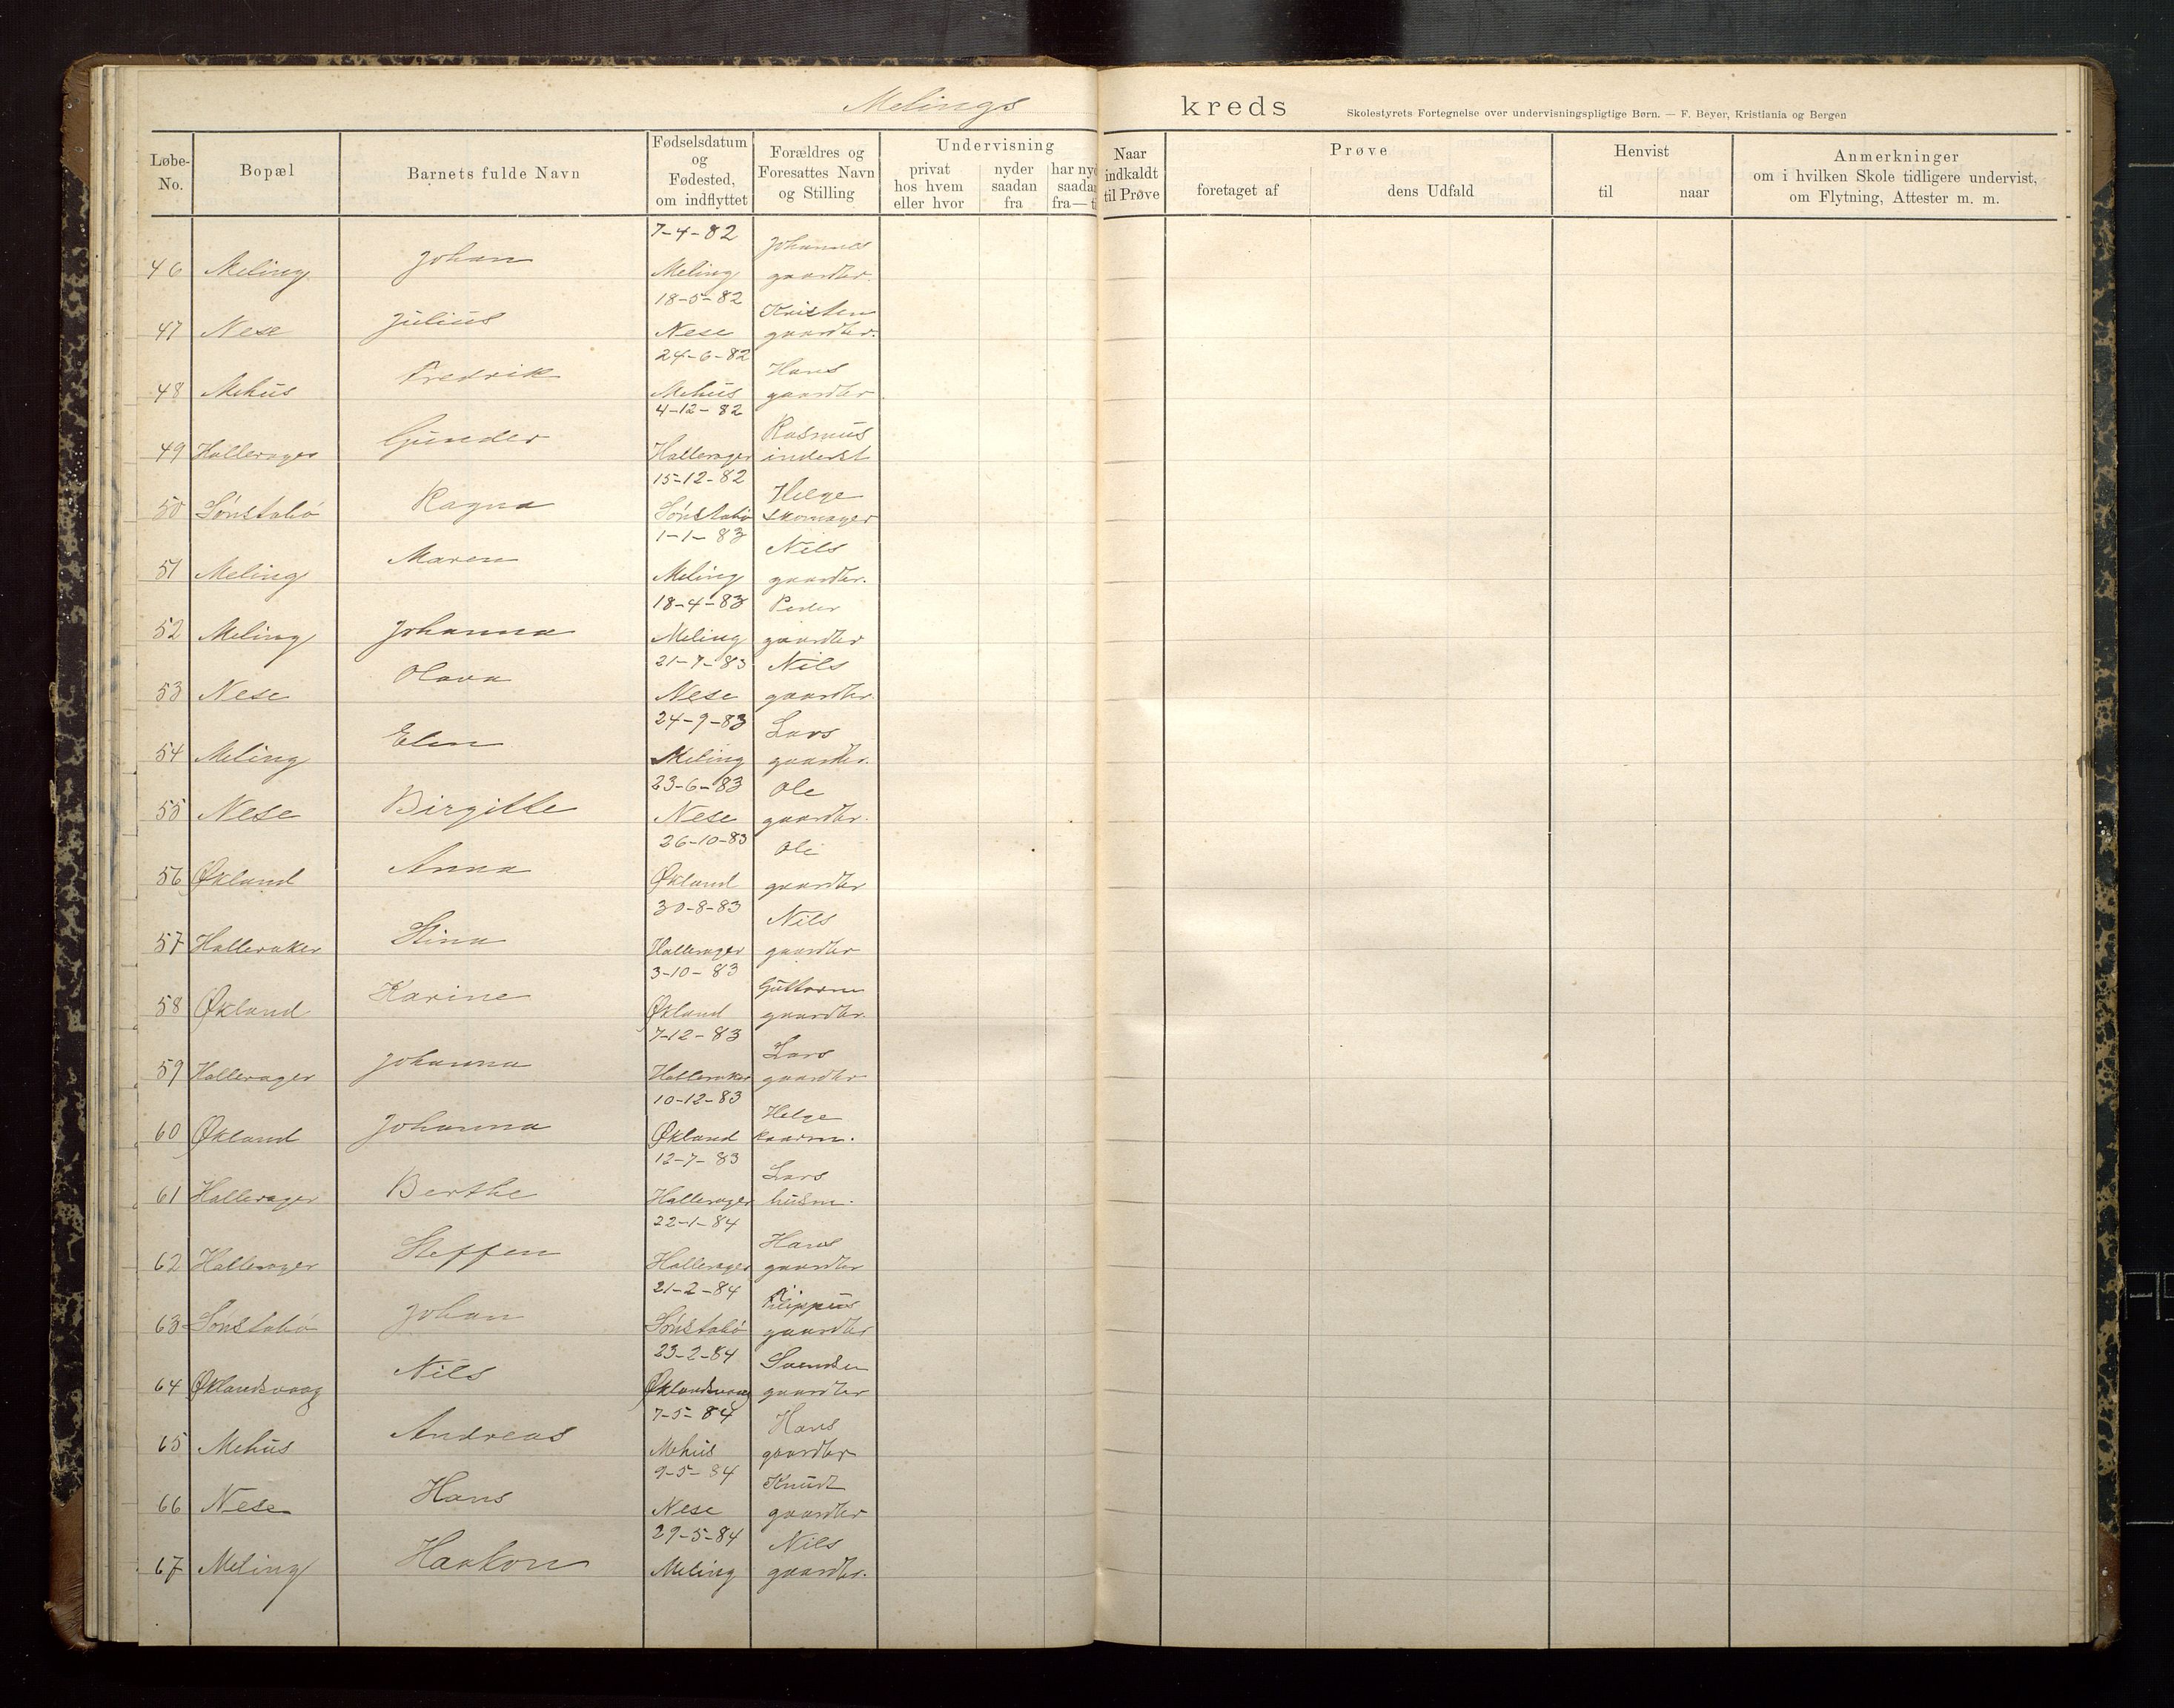 Melings kreds
Skolestyrets Fortegnelse over undervisningspligtige Børn. — F. Beyer, Kristiania og Bergen
Løbe-No. Bopæl Barnets fulde Navn Fødselsdatum og Fødested, om indflyttet Forældres og Foresattes Navn og Stilling Undervisning privat hos hvem eller hvor nyder saadan fra har nyd saadan fra— t Naar indkaldt til Prøve Prøve foretaget af dens Udfald Henvist til naar Anmerkninger om i hvilken Skole tidligere undervist, om Flytning, Attester m. m.
7-4-82 Johannes
46 Meling Johan Meling gaardbr.
18-5-82 Kristen
47 Nese Julius Nese gaardbr.
24-6-82 Hans
48 Mehus Fredrik Mehus gaardbr
4-12-82 Rasmus
49 Hallerager Gunder Hallerager inderst
15-12-82 Helge
50 Sønstabø Ragna Sønstabø skomager
1-1-83 Nils
51 Meling Maren Meling gaardbr.
18-4-83 Peder
52 Meling Johanna Meling gaardbr
21-7-83 Nils
53 Nese Olava Nese gaardbr.
24-9-83 Lars
54 Meling Elen Meling gaardbr.
23-6-83 Ole
55 Nese Birgitte Nese gaardbr.
26-10-83 Ole
56 Økland Anna Økland gaardbr
30-8-83 Nils
57 Halleraker Stina Hallerager gaardbr
3-10-83 Guttorm
58 Økland Karine Økland gaardbr.
7-12-83 Lars
59 Hallerager Johanna Halleraker gaardbr
10-12-83 Helge
60 Økland Johanna Økland kaarm.
12-7-83 Lars
61 Hallerager Berthe Hallerager husm.
22-1-84 Hans
62 Hallerager Steffen Hallerager gaardbr
21-2-84 Filippus
63 Sønstabø Johan Sønstabø gaardbr
23-2-84 Svendsen
64 Øklandsvaag Nils Øklandsvaag gaardbr
7-5-84 Hans
65 Mehus Andreas Mehus gaardbr
9-5-84 Knudt
66 Nese Hans Nese gaardbr
29-5-84 Nils
67 Meling Haakon Meling gaardbr.